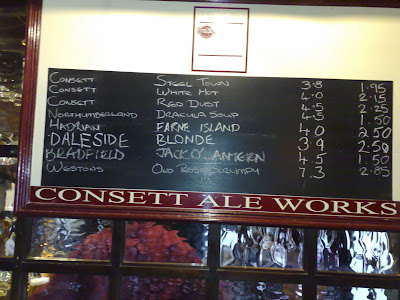 CONSETT STEEL TOWN 3.8 1.95
CONSETT WHITE HOT 4.0 2.15
CONSETT RED DUST 4.5 2.25
NORTHUMBERLAND DRACULA SOUP 4.5 1.50
HADRIAN FARNE ISLAND 4.0 2.50
DALESIDE BLONDE 3.9 2.50
BRADFIELD JACK O'LANTERN 4.5 1.50
WESTONS OLD ROSIE SCRUMPY 7.3 2.85
CONSETT ALE WORKS